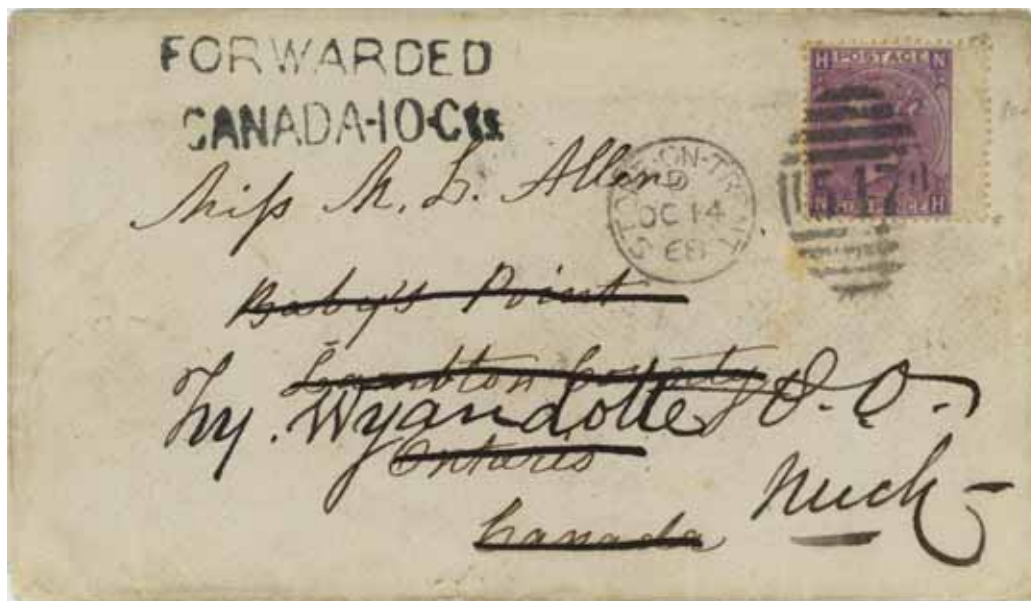 FORWARDED
CANADA-10-Cts
H POSTAGE N
N SIXPENCE H
STOKE-ON-TRENT
D
OC 14
68
Miss M. L. Allen
Baby's Point
Lambton County
Wyandotte P. O.
Ontario
Mich
Canada